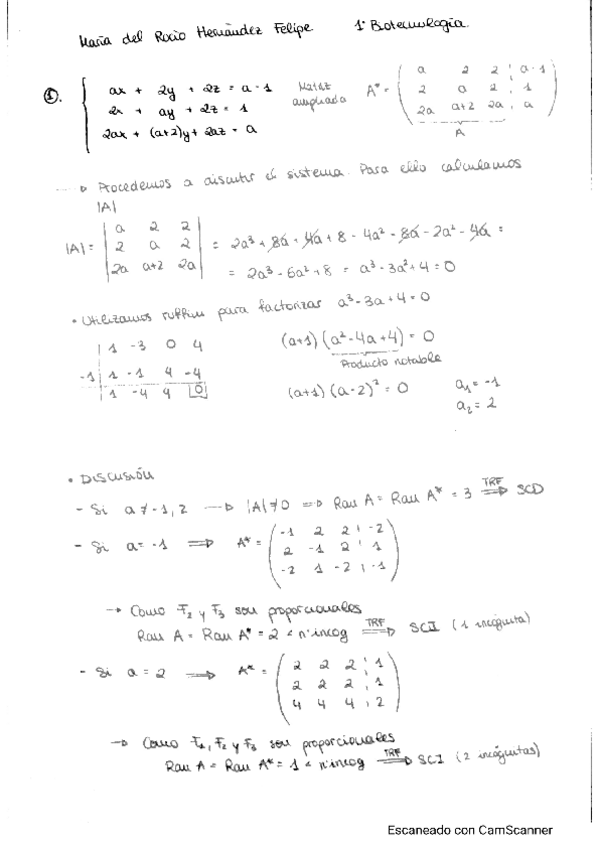 María del Rocío Hernández Felipe 1º Biotecnología.
①. { ax + 2y + 2z = a - 1
2x + ay + 2z = 1
2ax + (a+2)y + 2az = a
Matriz ampliada A* = ( a 2 2 ¦ a-1
2 a 2 ¦ 1
2a a+2 2a ¦ a )
A
→ Procedemos a discutir el sistema. Para ello calculamos
|A|
|A| = | a 2 2
2 a 2
2a a+2 2a | = 2a³ + 8a + 4a + 8 - 4a² - 8a - 2a² - 4a =
= 2a³ - 6a² + 8 = a³ - 3a² + 4 = 0
• Utilizamos ruffini para factorizar a³ - 3a + 4 = 0
| 1 -3 0 4
-1 | 1 -1 4 -4
1 -4 4 |0|
(a+1) (a² - 4a + 4) = 0
Producto notable
(a+1) (a-2)² = 0 a₁ = -1
a₂ = 2
• DISCUSIÓN
- Si a ≠ -1, 2 → |A| ≠ 0 ⇒ Ran A = Ran A* = 3 TRF ⇒ SCD
- Si a = -1 ⇒ A* = ( -1 2 2 ¦ -2
2 -1 2 ¦ 1
-2 1 -2 ¦ -1 )
→ Como F₂ y F₃ son proporcionales
Ran A = Ran A* = 2 < nºincog TRF ⇒ SCI (1 incógnita)
- Si a = 2 ⇒ A* = ( 2 2 2 ¦ 1
2 2 2 ¦ 1
4 4 4 ¦ 2 )
→ Como F₁, F₂ y F₃ son proporcionales
Ran A = Ran A* = 1 < nºincog TRF ⇒ SCI (2 incógnitas)
Escaneado con CamScanner